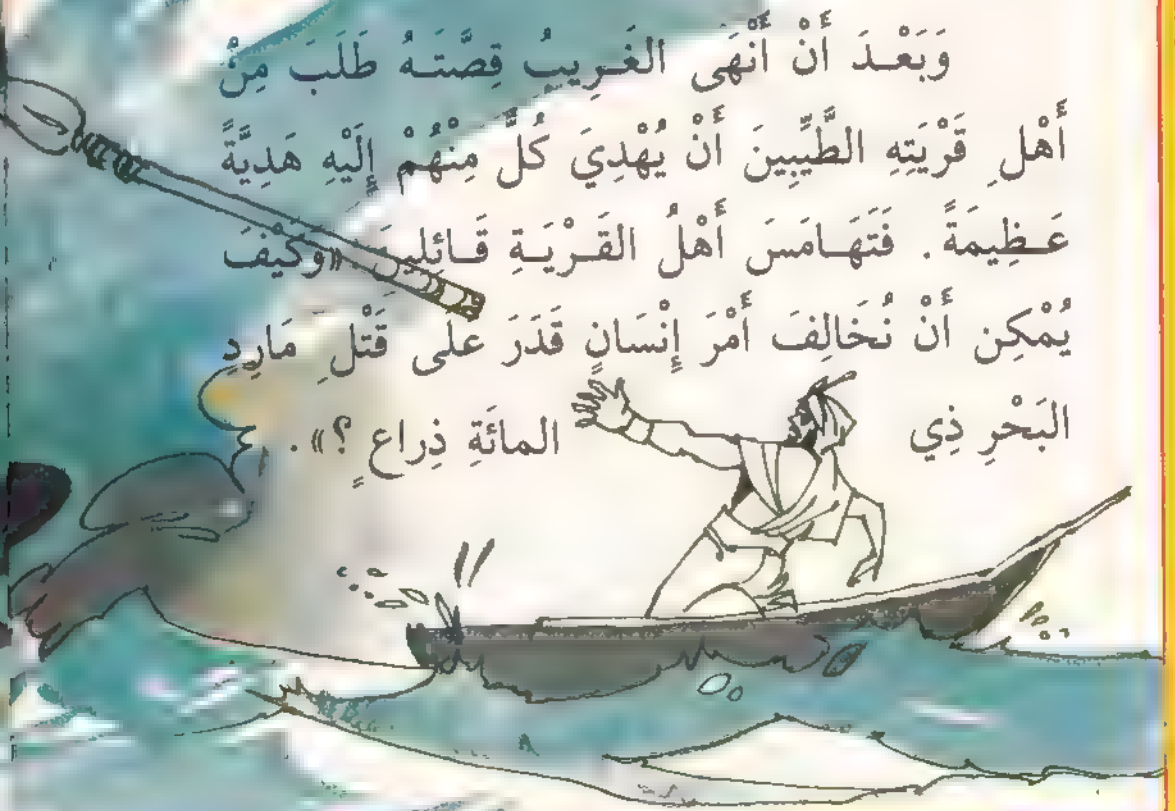 وَبَعْدَ أَنْ أَنْهَى الغَرِيبُ قِصَّتَهُ طَلَبَ مِنْ
أَهْلِ قَرْيَتِهِ الطَّيِّبِينَ أَنْ يُهْدِيَ كُلٌّ مِنْهُمْ إِلَيْهِ هَدِيَّةً
عَظِيمَةً. فَتَهَامَسَ أَهْلُ القَرْيَةِ قَائِلِينَ «وَكَيْفَ
يُمْكِن أَنْ نُخَالِفَ أَمْرَ إِنْسَانٍ قَدَرَ عَلَى قَتْلِ مَارِدِ
البَحْرِ ذِي المائَةِ ذِراعٍ ؟».